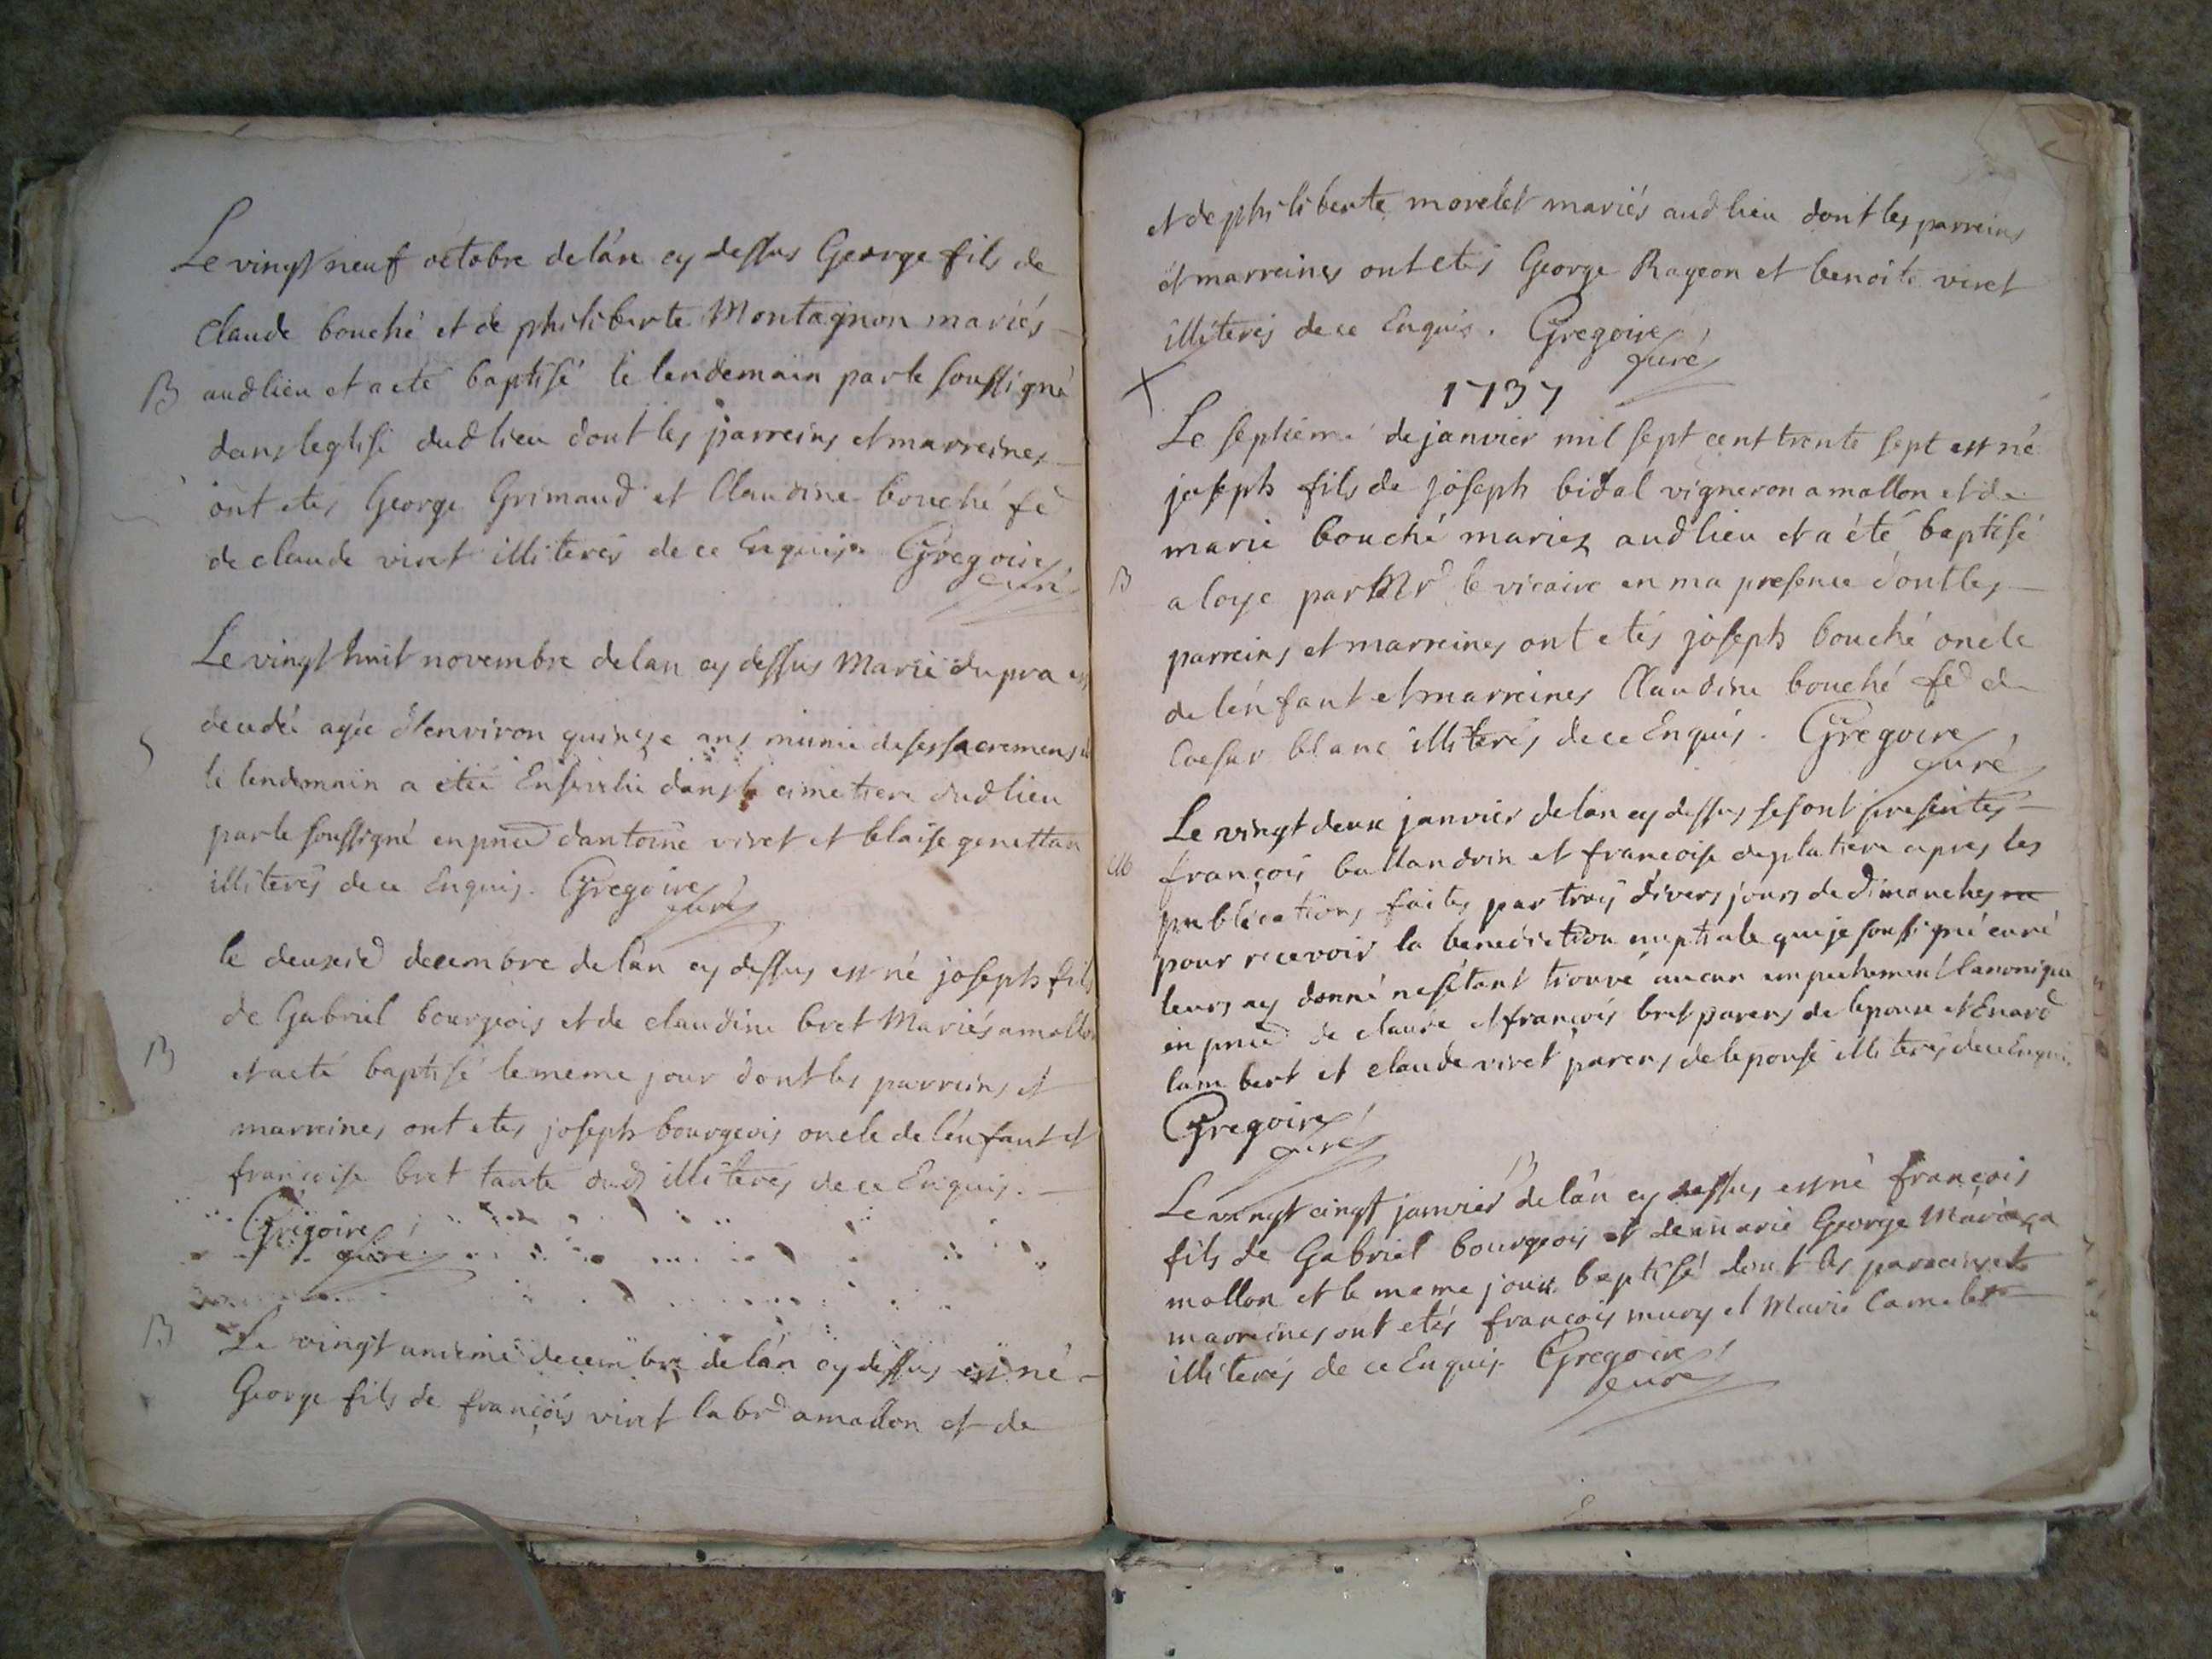 Le vingt neuf octobre de lán cy dessus George fils de
claude bouché et de philiberte Montagnon mariés
B aud lieu et a eté baptisé le lendemain par le soussigné
dans leglise dud lieu dont les parreins et marreines
ont etés George Grimaud et Claudine bouché fe
de claude viret illiterés de ce Enquis. Gregoire
curé
Le vingt huit novembre de lan cy dessus Marie dupra est
decedé agée d'environ quinze ans munie de ses sacremens et
S le lendemain a eteé Ensevelie dans le cimetiere dud lieu
par le soussigné en pnce d'antoine viret et blaise genettan
illiterés de ce Enquis. Gregoire
curé
le deuxie decembre de lán cy dessus est né joseph fils
de Gabriel bourgeois et de claudine bret Mariés a mollon
B et a eté baptisé le meme jour dont les parreins et
marreines ont etes joseph bourgeois oncle de lénfant et
francoise bret tante dud illiterés de ce Enquis.
Gregoire
curé
B Le vingt unieme decembre de lán cy dessus est né
George fils de françois viret labr a mollon et de
et de philiberte morelet mariés aud lieu dont les parreins
et marreines ont etés George Rageon et benoite viret
illiterés de ce Enquis. Gregoire
curé
X 1737
Le septieme de janvier mil sept cent trente sept est né
joseph fils de joseph bidal vigneron a mollon et de
marie bouché mariez aud lieu et a été baptisé
B a loye par Mr le vicaire en ma presence dont les
parreins et marreines ont etés joseph bouché oncle
de lénfant et marreines Claudine bouché fe de
Caesar blanc illiterés de ce Enquis. Gregoire
curé
Le vingt deux janvier de lan cy dessus se sont presentés
M françois ballandrin et francoise deplatiere apres les
publications faites par trois divers jours de dimanches
pour recevoir la benediction nuptiale que je soussigné curé
leurs ay donné ne sétant trouvé aucun empechement Canonique
en pnce de claude et françois bret parens de lepoux et Enard
lambert et claude viret parens de lepouse illiterés de ce Enquis.
Gregoire
curé
B
Le vingt cinqt janvier de lán cy dessus est né françois
fils de Gabriel bourgeois et de marie George Mariés a
mollon et le meme jour baptisé dont les parreins et
marreines ont etés françois mury et Marie Camelet
illiterés de ce Enquis. Gregoire
curé